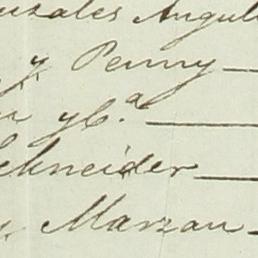 nzales Angul
y Penny
y C.ª
chneider
Marzau